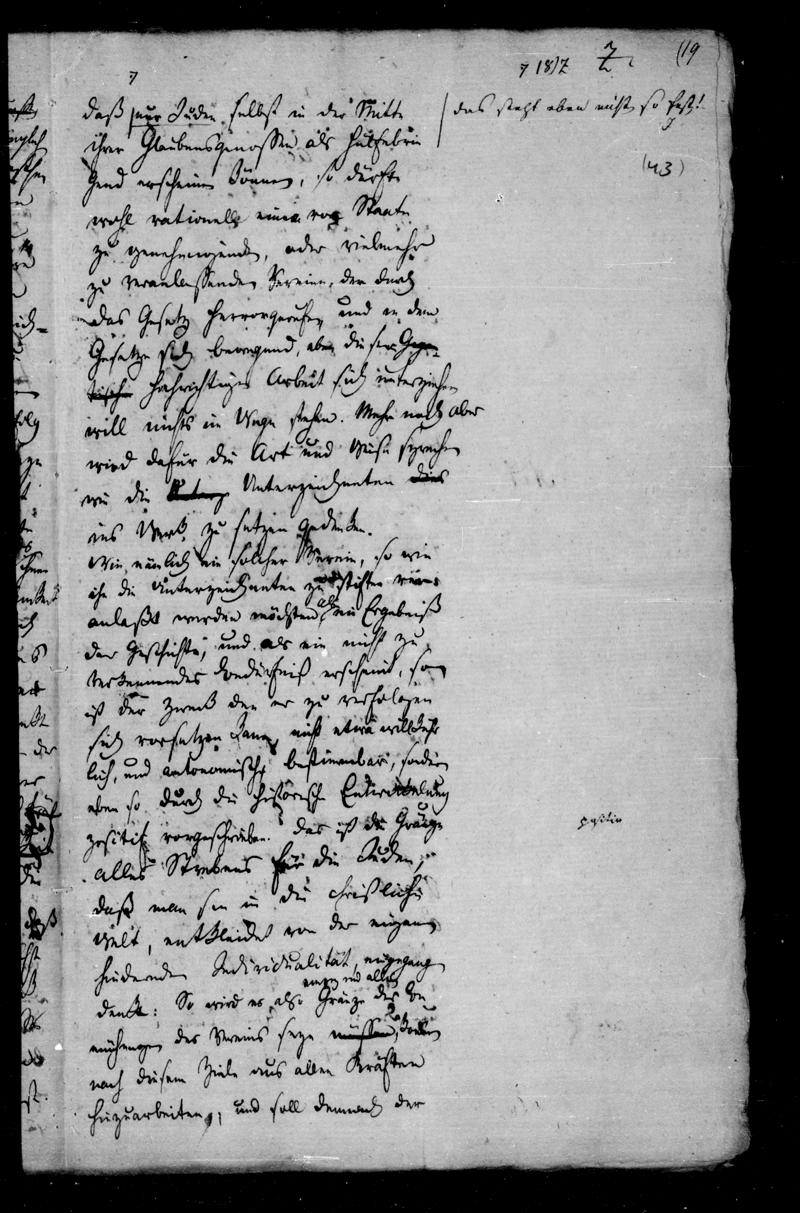 7
7 1817 7. (19
daß nur Juden selbst in der Mitte
das steht eben nicht so fest!
ihrer Glaubensgenossen als hülfebrin
(43)
gend erscheinen können, so dürfte
wohl rationell einem vom Staate
zu genehmigenden, oder vielmehr
zu veranlassenden Verein, der durch
das Gesetz hervorgerufen und in dem
Gesetze sich bewegend, eben dieser
Arbeit sich unterziehen
will nichts im Wege stehen. Mehr noch aber
wird dafür die Art und Weise sprechen
wie die Unterzeichneten dies
ins Werk zu setzen gedenken.
Wie nämlich ein solcher Verein, so wie
ihn die Unterzeichneten zu stiften veran
anlaßt werden möchten, als ein Ergebniß
der Geschichte, und als ein nicht zu
verkennendes Bedürfniß erscheint, so
ist der Zweck den er zu verfolgen
sich vorsetzen kann, nicht etwa willkühr
lich, und autonomisch bestimmbar, sondern
eben so durch die historische Entwickelung
positif vorgeschrieben. Das ist die Gränze
positiv
alles Strebens für die Juden,
daß man sie in die christliche
Welt, entkleidet von der eigenen
hindernden Individualität, eingegangen
denkt: So wird es also Gränze des Be
mühungen des Vereins seyn müssen,
nach diesem Ziele aus allen Kräften
hinzuarbeiten, und soll demnach der